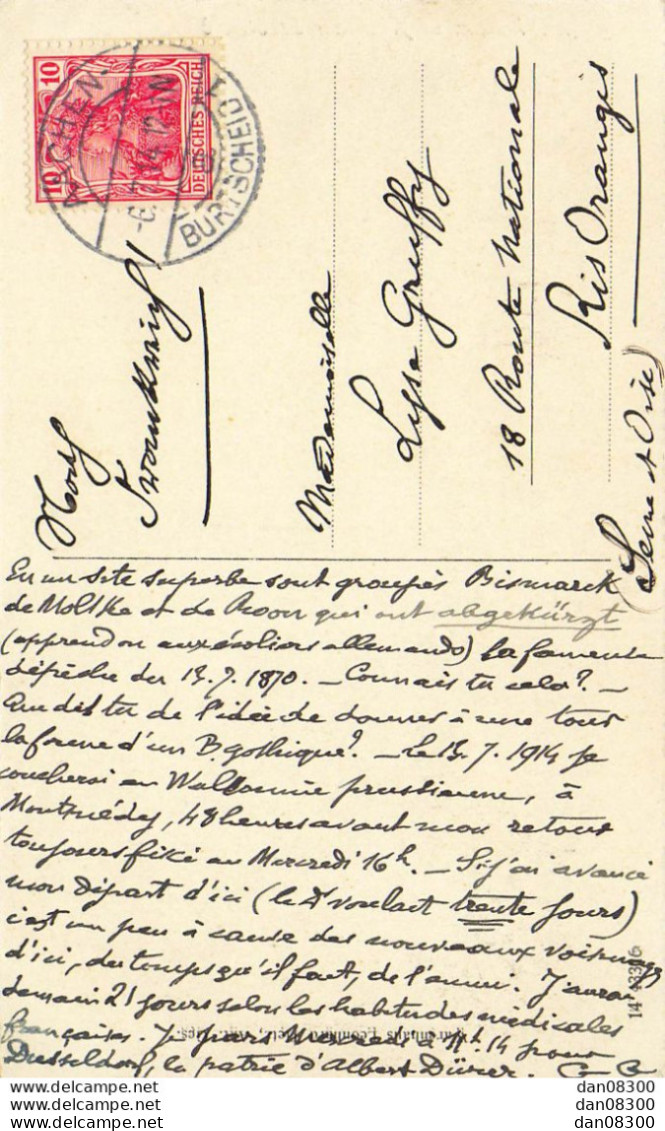 10 10
DEUTSCHES REICH
AACHEN
BURTSCHEID
Nach
Frankreich!
Mademoiselle
Lyse Gruffy
18 Route Nationale
Ris Orangis
(Seine et Oise)
En un site superbe sont groupés Bismarck
de Moltke et de Roon qui ont abgekürzt
(apprend on aux écoliers allemands) la fameuse
dépêche du 13.7.1870. — Connais tu cela? —
Que dis tu de l'idée de donner à une tour
la forme d'un B gothique? — Le 13.7.1914 je
coucherai en Wallonie prussienne, à
Montmédy, 48 heures avant mon retour
toujours fixé au Mercredi 16h. — Si j'ai avancé
mon départ d'ici (le Dr voulait trente jours)
c'est un peu à cause des nouveaux voisinages
d'ici, du temps qu'il fait, de l'ennui. J'aurai
demain 21 jours selon les habitudes médicales
françaises. Je pars Mercredi à 11h.14 pour
Dusseldorf, la patrie d'Albert Dürer. G G
14 13316
dan08300
dan08300
dan08300